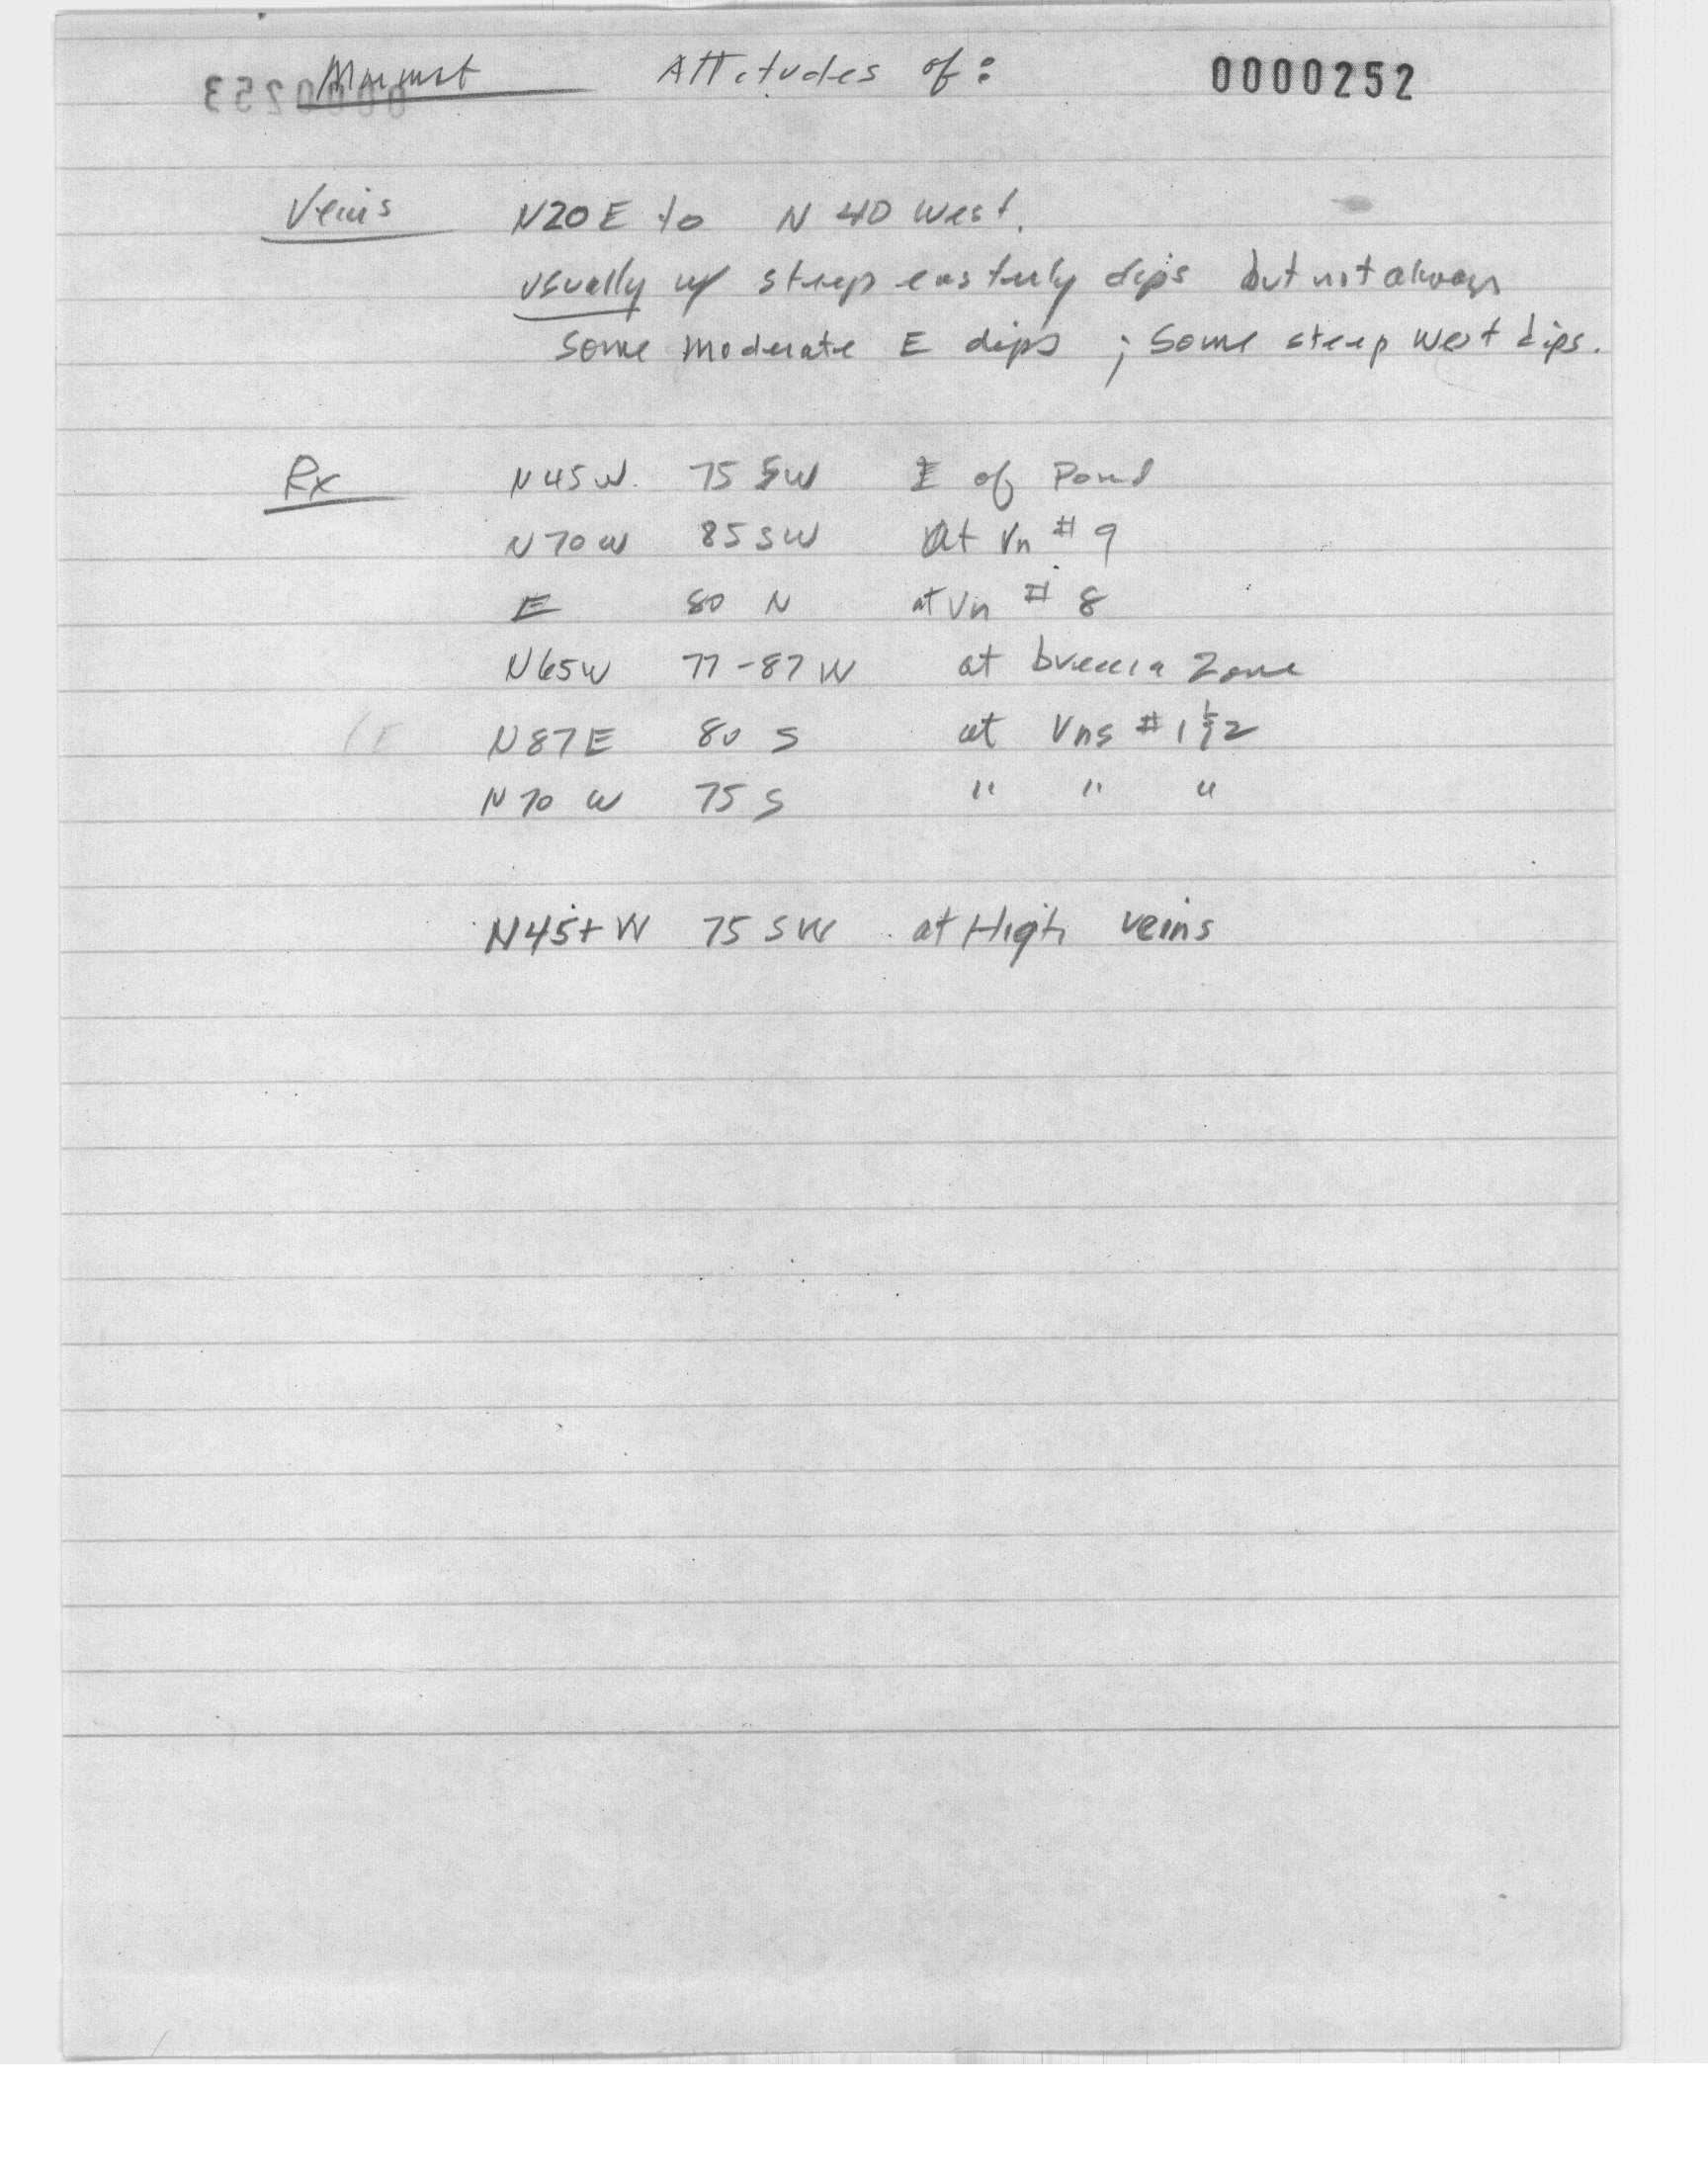 Attitudes of: 0000252
Veins N20E to N 40 West.
usually w/ steep easterly dips but not always
Some moderate E dips ; Some steep West dips.
Rx N45W. 75 SW E of Pond
N70W 85 SW At Vn #9
E 80 N at Vn #8
N65W 77-87 W at breccia Zone
N87E 80 S at Vns #1 & 2
N70 W 75 S " " "
N45+W 75 SW at High veins